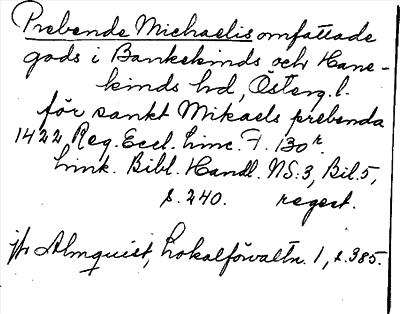 Prebende Michaelis omfattade
gods i Bankekinds och Hane-
kinds hd, Österg. l.
för sankt Mikaels prebenda
1422 Reg. Eccl. Linc. F. 130 r.
Link. Bibl. Handl. NS:3, Bil. 5,
s. 240. regest.
jfr Almquist, Lokalförvaltn. 1, s. 385.